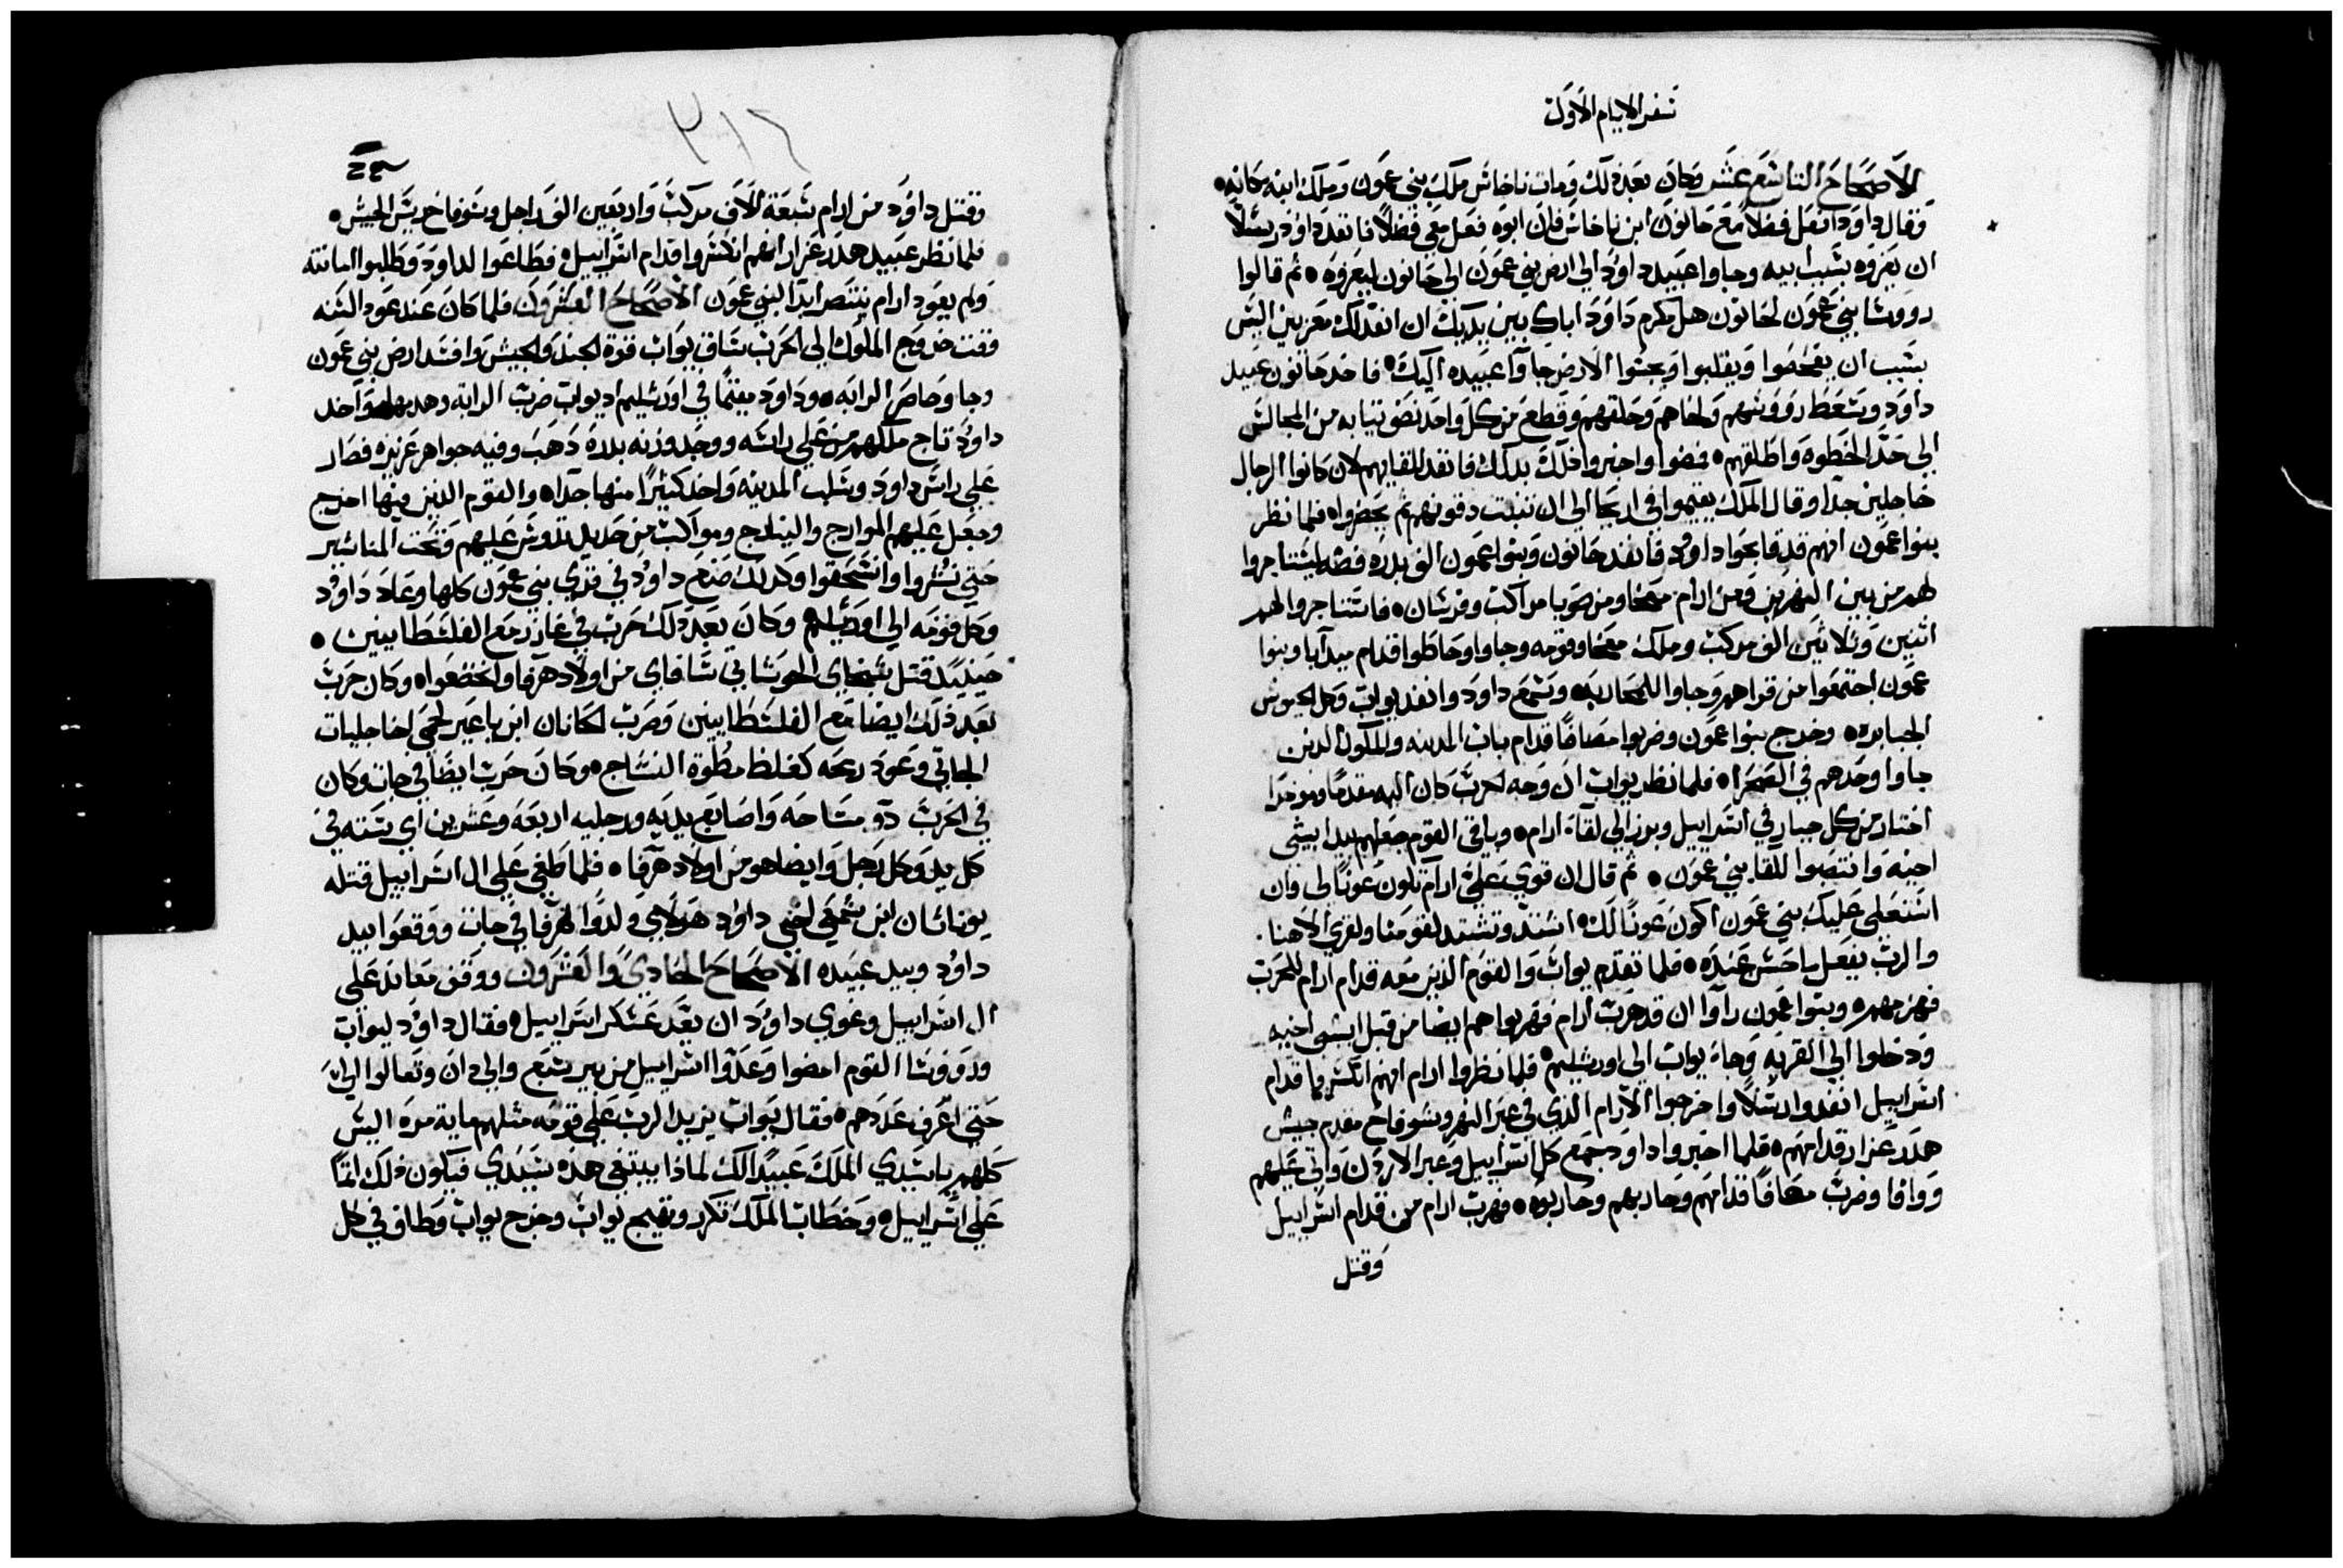 سفر الايام الاول
الاصحاح التاسع عشر وكان بعد ذلك ومات ناخاش ملك بني عمون وملك ابنه مكانه
وقال داود افعل فضلا مع حانون ابن ناخاش فان ابوه فعل معي فضلا فانفد داود رسلا
ان يعزوه بسبب ابيه وجاوا عبيد داود الي ارض بني عمون الي حانون ليعزوه ثم قالوا
رووسا بني عمون لحانون هل مكرم داود اباك بين يديك ان انفد لك معزيين اليس
بسبب ان يفحصوا ويقلبوا ويجسوا الارض جاوا عبيده اليك فاخد حانون عبيد
داود وشعط رووسهم ولحاهم وحلقهم وقطع من كل واحد نصف ثيابه من المجالس
الي حد الخطوه واطلقهم فمضوا واخبروا داود بذلك فانفد للقايهم لان كانوا الرجال
خاجلين جدا وقال الملك يقيموا في اريحا الي ان تنبت دقونهم ثم يحضروا فلما نظر
بنوا عمون انهم قد قابحوا داود فانفد حانون وبنوا عمون الف بدره فضه ليستاجروا
لهم من بين النهرين ومن ارام معخا ومن صوبا مراكب وفرسان فاستاجروا لهم
اثنين وثلاثين الف مركب وملك معخا وقومه وجاوا وحاطوا قدام ميدبا وبنوا
عمون اجتمعوا من قراهم وجاوا للمحاربه وسمع داود وانفد يواب وكل الجيوش
الجبابره وخرج بنوا عمون وضربوا مصافا قدام باب المدينه والملوك الدين
جاوا وحدهم في الصحرا فلما نظر يواب ان وجه الحرب كان اليه مقدما وموخرا
اختار من كل جبار في اسراييل وبرز الي لقاة ارام وباقي القوم جعلهم بيد ابيشي
اخيه وانتصبوا للقا بني عمون ثم قال ان قوي علي ارام تكون عونا لي وان
استعلي عليك بني عمون اكون عونا لك اشتد وتشتد لقومنا ولقري الاهنا
والرب يفعل ما حسن عنده فلما تقدم يواب والقوم الذين معه قدام ارام للحرب
فهزمهم وبنوا عمون راوا ان قد هرب ارام فهربوا هم ايضا من قبل ابيشي اخيه
ودخلوا الي القريه وجاء يواب الي اورشليم فلما نظروا ارام انهم انكسروا قدام
اسراييل انفدوا رسلا واخرجوا الارام الذي في عبر النهر وسوفاخ مقدم جيش
هدد عزار قدامهم فلما اخبروا داود جمع كل اسراييل وعبر الاردن واتي عليهم
ووافا وضرب مصافا قدامهم وحاربهم وحاربوه فهرب ارام من قدام اسراييل
وقتل
٣١٢
وقتل داود من ارام سبعة الاف مركب واربعين الف راجل وسوفاخ ريس الجيش
فلما نظر عبيد هدد عزار انهم انكسروا قدام اسراييل فطاعوا لداود وطلبوا امانته
ولم يعود ارام ينتصر ابدا لبني عمون الاصحاح العشرون فلما كان عند عود السنه
وقت خروج الملوك الي الحرب ساق يواب قوة الجند والجيش وافسد ارض بني عمون
وجا وحاصر الرابه وداود مقيما في اورشليم ويواب ضرب الرابه وهدمها واخد
داود تاج ملكهم من علي راسه ووجد وزنه بدرة دهب وفيه جواهر عزيزه فصار
علي راس داود وسلب المدينه واخد كثيرا منها جدا والقوم الذين فيها اخرج
وجعل عليهم الموارج والنيارج ومواكب من حديد تدوس عليهم وتحت المناشير
حتي نشروا وانسحقوا وكذلك صنع داود في قري بني عمون كلها وعاد داود
وكل قومه الي اورشليم وكان بعد ذلك حرب في غازر مع الفلسطانيين
حينيد قتل سبخاي الحوشاتي سافاي من اولاد هرافا واخضعوا وكان حرب
بعد ذلك ايضا مع الفلسطانيين وضرب الحانان ابن ياعير لحمي اخا جليات
الجاتي وعود رمحه كغلظ مطوة النساج وكان حرب ايضا في جات وكان
في الحرب ذو مساحه واصابع يديه ورجليه اربعه وعشرين اي سته في
كل يد وكل رجل وايضا هو من اولاد هرافا فلما طغي علي ال اسراييل قتله
يوناتان ابن شمعي اخي داود هولاي ولدوا لهرافا في جات ووقعوا بيد
داود وبيد عبيده الاصحاح الحادي والعشرون ووقف معاند علي
ال اسراييل وغوي داود ان يعد عسكر اسراييل فقال داود ليواب
ورووسا القوم امضوا وعدوا اسراييل من بير سبع والي دان وتعالوا الي
حتي اعرف عددهم فقال يواب يزيد الرب علي قومه مثلهم ماية مره اليس
كلهم يا سيدي الملك عبيدا لك لماذا يبتغي هذه سيدي فيكون ذلك اثما
علي اسراييل وخطاب الملك تكرر وتهيج يواب وخرج يواب وطاف في كل